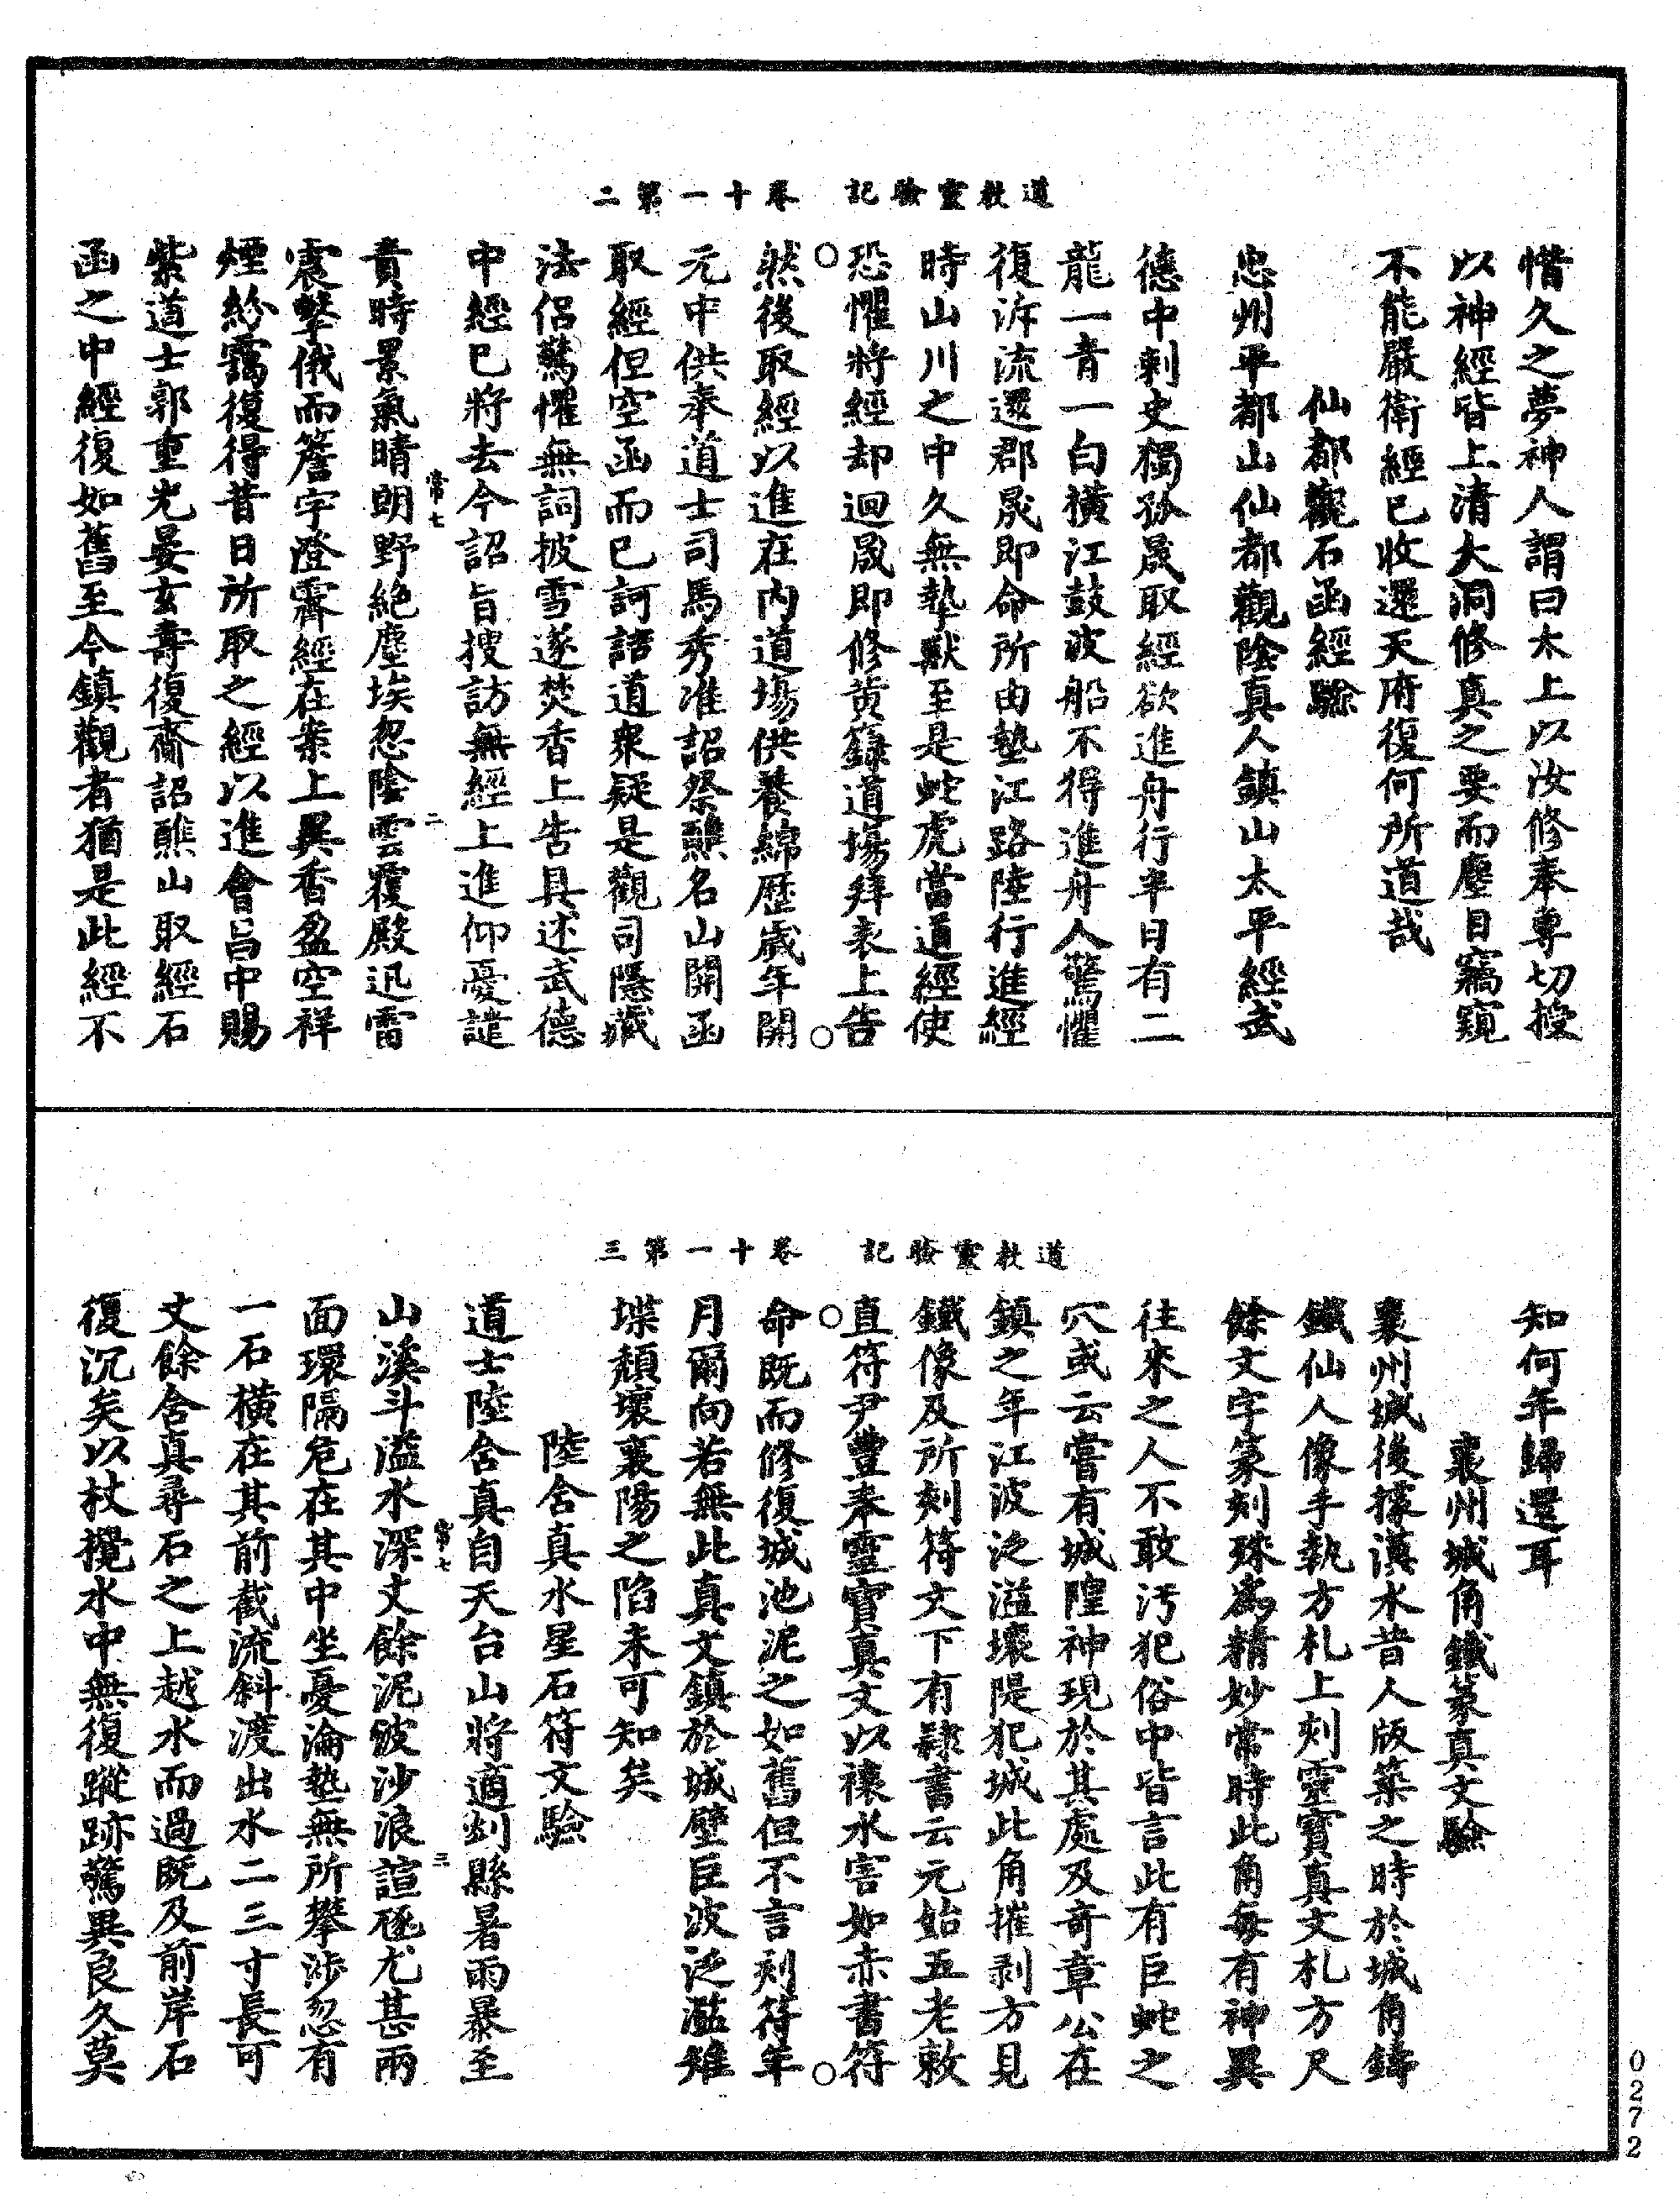 道教靈驗記　卷十一第二
惜久之夢神人謂曰太上以汝修奉專切授
以神經皆上清大洞修真之要而塵目竊窺
不能嚴衛經已收還天府復何所道哉
仙都觀石函經驗
忠州平都山仙都觀陰真人鎮山太平經武
德中刺史獨孤晟取經欲進舟行半日有二
龍一青一白橫江鼓波船不得進舟人驚懼
復泝流還郡晟即命所由墊江路陸行進經
時山川之中久無摯獸至是蛇虎當道經使
恐懼將經却迴晟即修黄籙道場拜表上告
然後取經以進在内道場供養綿歷歲年開
元中供奉道士司馬秀准詔祭醮名山開函
取經但空函而已訶詰道衆疑是觀司隱藏
法侶驚懼無詞披雪遂焚香上告具述武德
中經已將去今詔旨搜訪無經上進仰憂譴
責時景氣晴朗野絶塵埃忽陰雲覆殿迅雷
常七
二
震擊俄而簷宇澄霽經在案上異香盈空祥
煙紛靄復得昔日所取之經以進會昌中賜
紫道士郭重光晏玄壽復齋詔醮山取經石
函之中經復如舊至今鎮觀者猶是此經不
道教靈驗記　卷十一第三
知何年歸還耳
襄州城角鐵篆真文驗
襄州城後據漢水昔人版築之時於城角鑄
鐵仙人像手執方札上刻靈寶真文札方尺
餘文字篆刻殊為精妙常時此角每有神異
往來之人不敢汚犯俗中皆言此有巨蛇之
穴或云嘗有城隍神現於其處及奇章公在
鎮之年江波泛溢壞隄犯城此角摧剥方見
鐵像及所刻符文下有隸書云元始五老敕
直符尹豐奉靈寶真文以禳水害如赤書符
命既而修復城池泥之如舊但不言刻符年
月爾向若無此真文鎮於城壁巨波泛濫雉
堞頽壞襄陽之陷未可知矣
陸含真水星石符文驗
道士陸含真自天台山將適剡縣暑雨暴至
山溪斗溢水深丈餘泥皷沙浪諠豗尤甚兩
常七
三
面環隔危在其中坐憂淪墊無所攀涉忽有
一石橫在其前截流斜渡出水二三寸長可
丈餘含真尋石之上越水而過既及前岸石
復沉矣以杖攪水中無復蹤跡驚異良久莫
0272